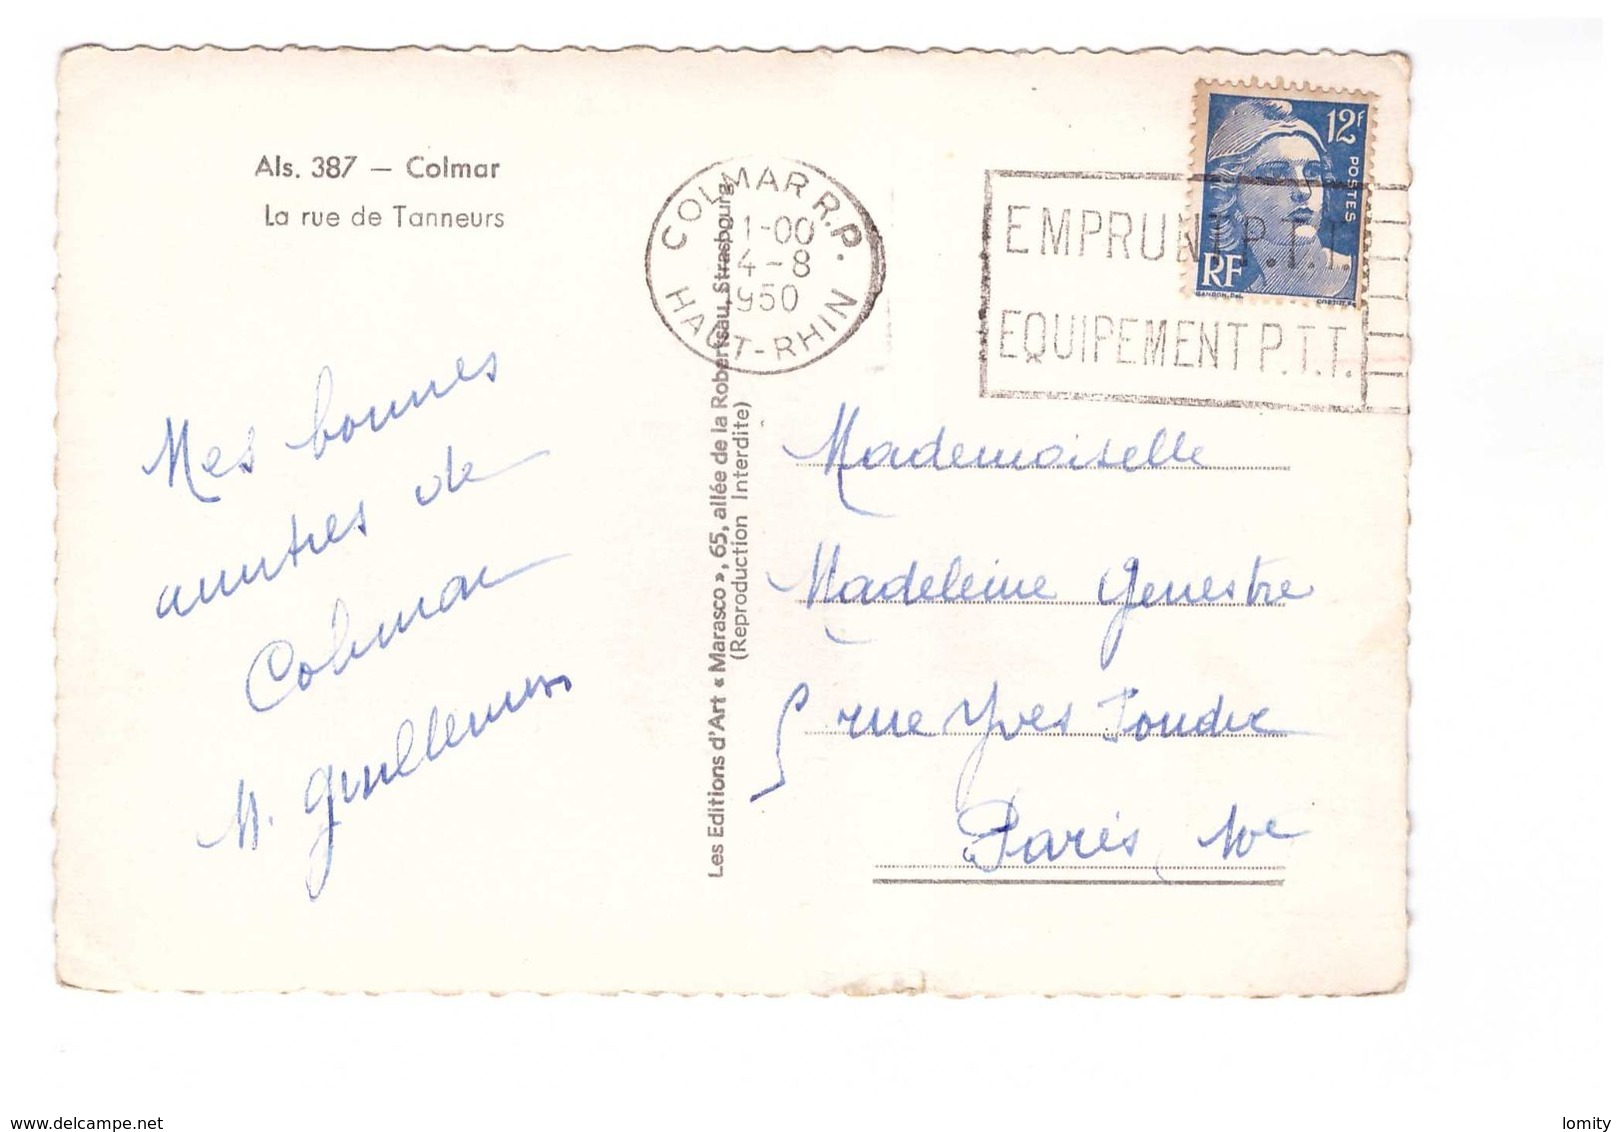 Als. 387 — Colmar
La rue de Tanneurs
Mes bonnes
amitiés de
Colmar
M.
Les Editions d'Art « Marasco », 65, allée de la Robertsau, Strasbourg
(Reproduction Interdite)
COLMAR R.P.
1-00
4-8
1950
HAUT-RHIN
12F
POSTES
RF
EMPRUNT P.T.T.
EQUIPEMENT P.T.T.
Mademoiselle
Madeleine Genestre
5 rue Yves Toudic
Paris 10e
www.delcampe.net
lomity